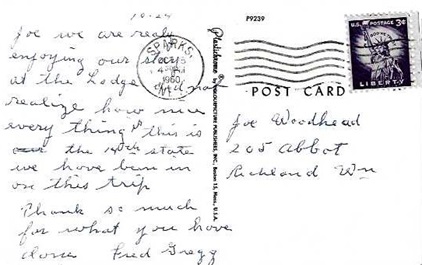 10-24
Joe we are realy
enjoying our stay
at the Lodge did not
realize how nice
every thing is this is
the 14th state
we have been in
on this trip
Thank so much
for what you have
done Fred Gregg
P9239
Plastichrome ® by COLOURPICTURE PUBLISHERS, INC., Boston 15, Mass., U.S.A.
SPARKS,
1960
POST CARD
U.S. POSTAGE 3¢
LIBERTY
Joe Woodhead
205 Abbot
Richland Wn